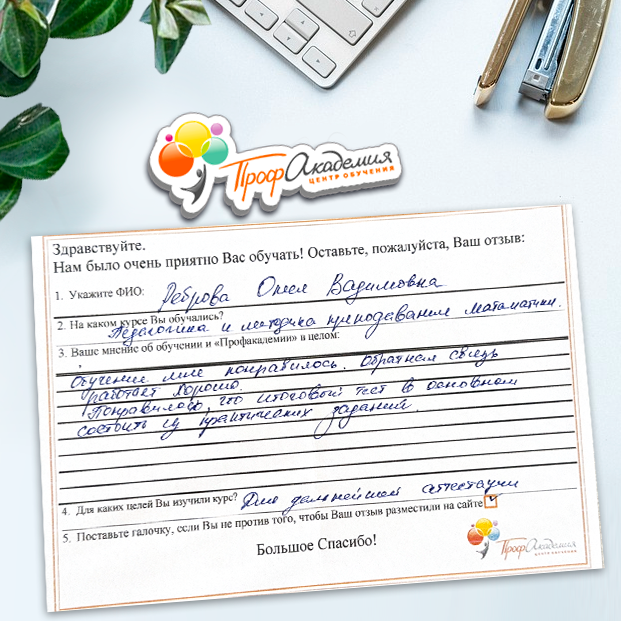 ПрофАкадемия
ЦЕНТР ОБУЧЕНИЯ
Здравствуйте.
Нам было очень приятно Вас обучать! Оставьте, пожалуйста, Ваш отзыв:
1. Укажите ФИО: Реброва Олеся Вадимовна
2. На каком курсе Вы обучались?
Педагогика и методика преподавания математики.
3. Ваше мнение об обучении и «Профакадемии» в целом:
Обучение мне понравилось. Обратная связь
работает хорошо.
Понравилось, что итоговый тест в основном
состоит из практических заданий.
4. Для каких целей Вы изучили курс? Для дальнейшей аттестации
5. Поставьте галочку, если Вы не против того, чтобы Ваш отзыв разместили на сайте
Большое Спасибо!
ПрофАкадемия
ЦЕНТР ОБУЧЕНИЯ